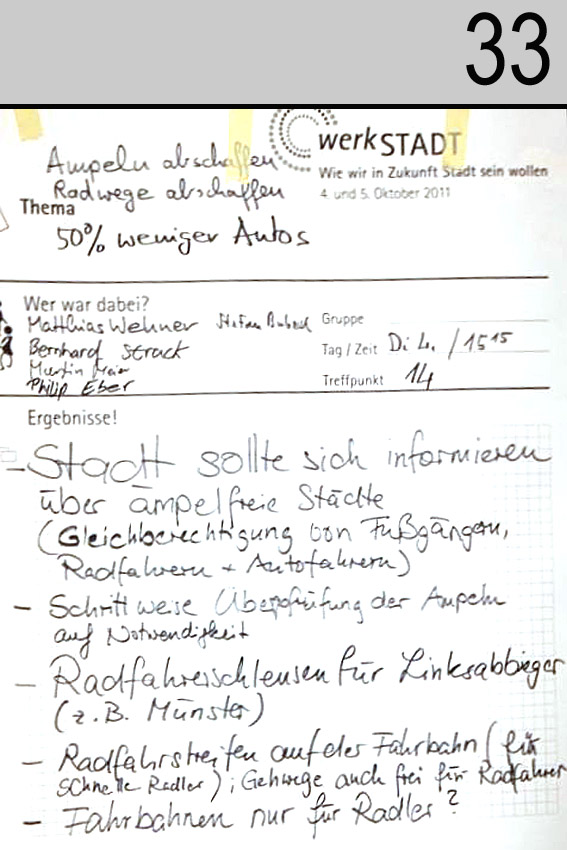 33
werkSTADT
Wie wir in Zukunft Stadt sein wollen
4. und 5. Oktober 2011
Ampeln abschaffen
Radwege abschaffen
Thema
50% weniger Autos
Wer war dabei?
Matthias Wehner Stefan
Bernhard Strack
Martin
Philip Eber
Gruppe
Tag / Zeit Di 4. / 15 15
Treffpunkt 14
Ergebnisse!
- Stadt sollte sich informieren
über ampelfreie Städte
(Gleichberechtigung von Fußgängern,
Radfahrern + Autofahrern)
- Schrittweise Überprüfung der Ampeln
auf Notwendigkeit
- Radfahrerschleusen für Linksabbieger
(z.B. Münster)
- Radfahrstreifen auf der Fahrbahn (für
schnelle Radler); Gehwege auch frei für Radfahrer
- Fahrbahnen nur für Radler?